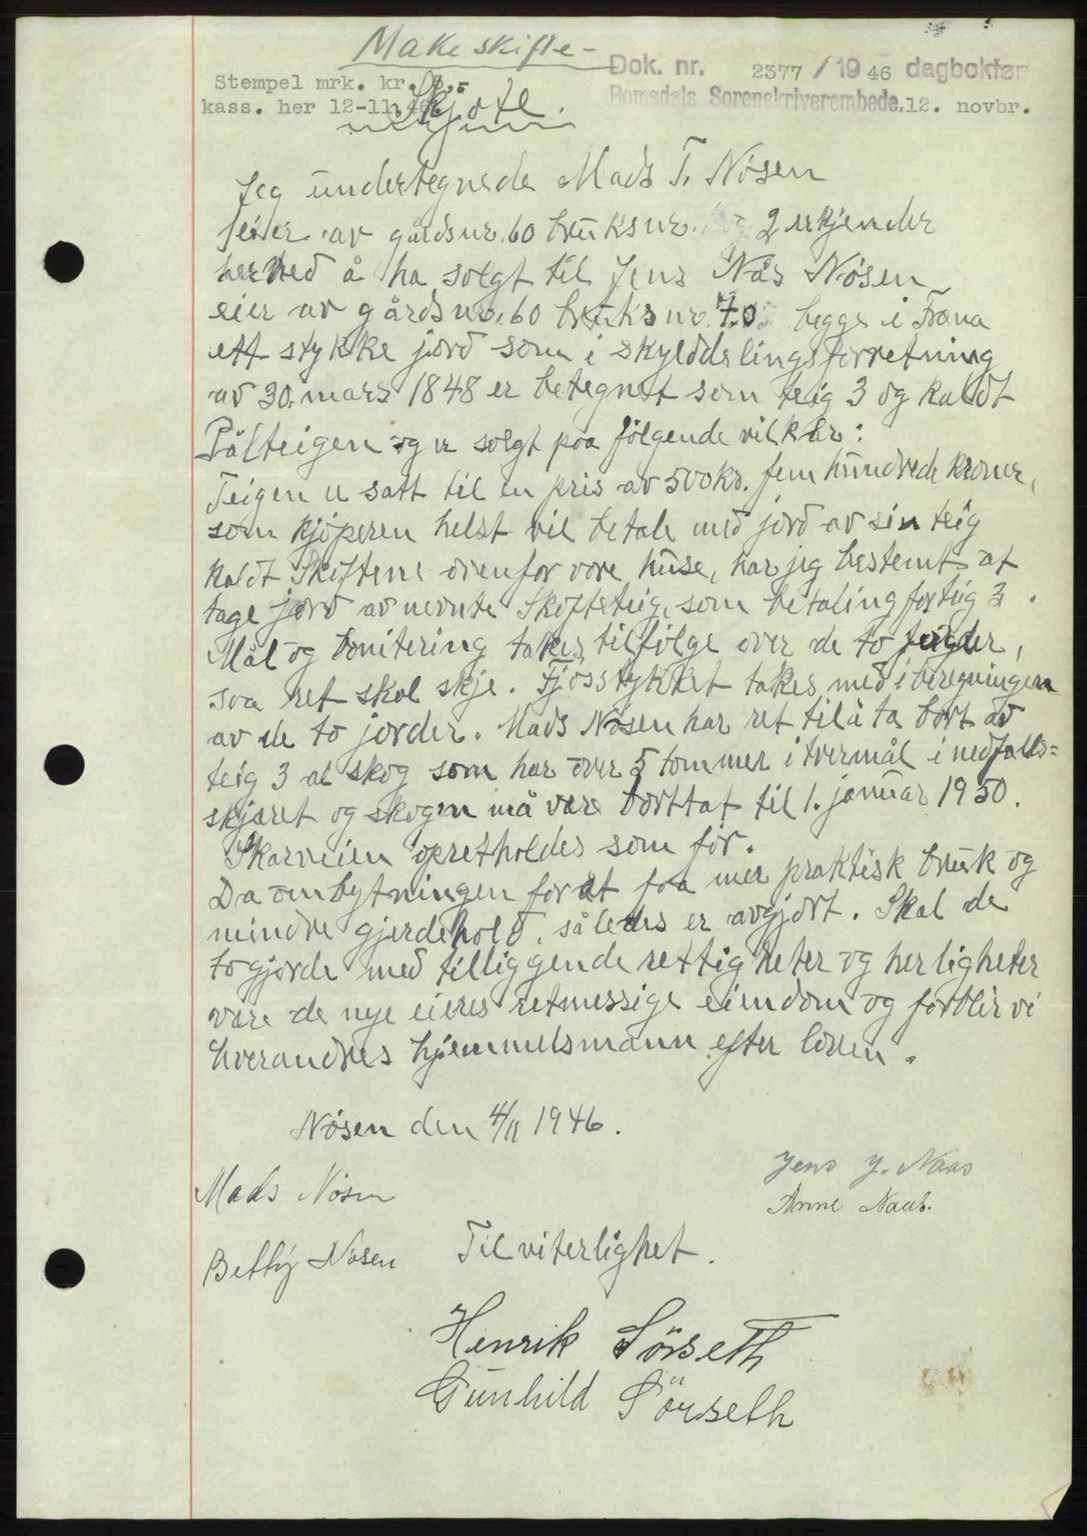 Makeskifte-
Stempel mrk. kr.
Dok. nr. 2377 / 1946 dagbokfør
kass. her 12-11.46. Skjøte.
Romsdals Sorenskriverembede, 12. novbr.
Jeg undertegnede Mads T. Nøsen
eier av gårdsnr. 60 bruksnr. 2 erkjender
herved å ha solgt til Jens Nås Nøsen
eier av gårdsnr. 60 bruksnr. 7.0 begge i Fræna
ett stykke jord som i skylddelingsforretning
av 30. mars 1848 er betegnet som teig 3 og kaldt
Pålteigen og er solgt paa følgende vilkår:
Teigen er satt til en pris av 500 kr. fem hundrede kroner,
som kjøperen helst vil betale med jord av sin teig
kaldt Skoftene ovenfor vore huse, har jeg bestemt at
tage jord av nevnte Skofteteig, som betaling for teig 3.
Mål og bonitering takes tilfølge over de to teigder,
svå ret skal skje. Fjøsstykket takes med i beregningen
av de to jorder. Mads Nøsen har ret til å ta bort av
teig 3 al skog som har over 5 tommer i tvermål i nedfalls=
skjæret og skogen må være borttat til 1. januar 1950.
Skarveien opretholdes som før.
Da ombytningen for at faa mer praktisk bruk og
mindre gjerdehold, således er avgjort. Skal de
to gjorde med tilliggende rettigheter og herligheter
være de nye eieres retmessige eiendom og forblir vi
hverandres hjemmelsmann efter loven.
Nøsen den 4/11 1946.
Jens J. Naas
Mads Nøsen
Anne Naas.
Betty Nøsen Til viterlighet.
Henrik Sörseth
Gunhild Sörseth